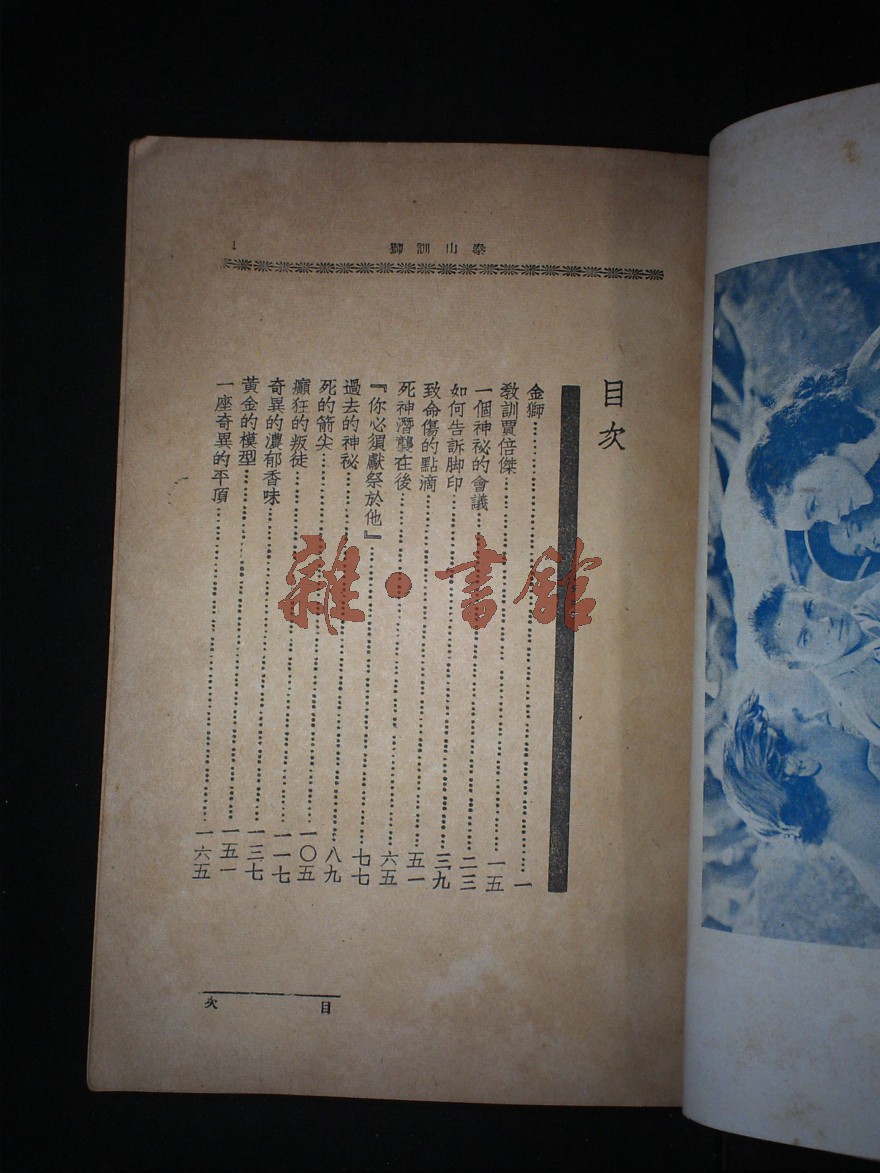 泰山訓獅
1
目次
金獅……一
教訓賈倍傑……一五
一個神祕的會議……二三
如何告訴脚印……三九
致命傷的點滴……五一
死神潛襲在後……六五
『你必須獻祭於他』……七七
過去的神祕……八九
死的箭尖……一〇五
癲狂的叛徒……一一七
奇異的濃郁香味……一三七
黃金的模型……一五一
一座奇異的平頂……一六五
目次
雜·書館